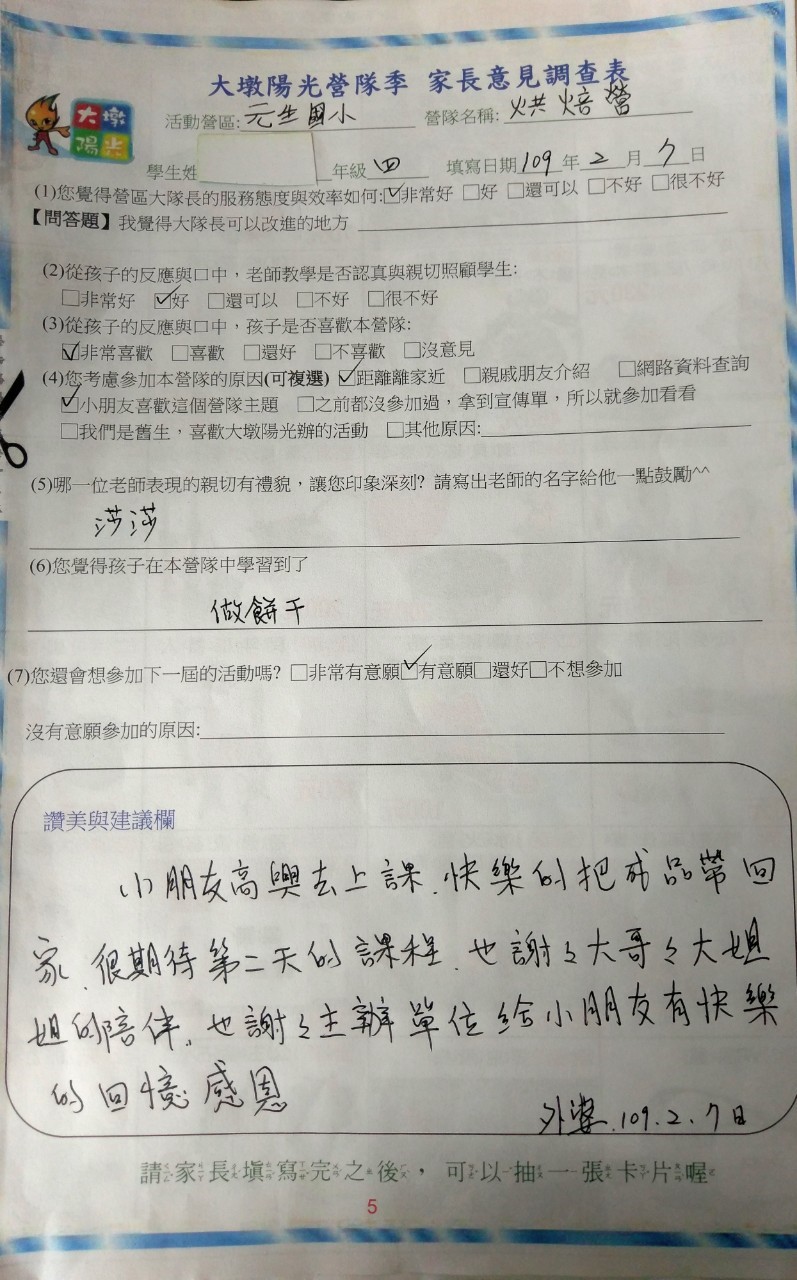 大墩陽光營隊季 家長意見調查表
大墩
陽光
活動營區:元生國小 營隊名稱:烘焙營
學生姓 年級 四 填寫日期109年2月7日
(1)您覺得營區大隊長的服務態度與效率如何:☑非常好 □好 □還可以 □不好 □很不好
【問答題】我覺得大隊長可以改進的地方
(2)從孩子的反應與口中，老師教學是否認真與親切照顧學生:
□非常好 ☑好 □還可以 □不好 □很不好
(3)從孩子的反應與口中，孩子是否喜歡本營隊:
☑非常喜歡 □喜歡 □還好 □不喜歡 □沒意見
(4)您考慮參加本營隊的原因(可複選) ☑距離離家近 □親戚朋友介紹 □網路資料查詢
☑小朋友喜歡這個營隊主題 □之前都沒參加過，拿到宣傳單，所以就參加看看
□我們是舊生，喜歡大墩陽光辦的活動 □其他原因:
(5)哪一位老師表現的親切有禮貌，讓您印象深刻? 請寫出老師的名字給他一點鼓勵^^
莎莎
(6)您覺得孩子在本營隊中學習到了
做餅干
(7)您還會想參加下一屆的活動嗎? □非常有意願☑有意願□還好□不想參加
沒有意願參加的原因:
讚美與建議欄
小朋友高興去上課.快樂的把成品帶回
家.很期待第二天的課程.也謝々大哥々大姐
姐的陪伴.也謝々主辦單位給小朋友有快樂
的回憶感恩
外婆.109.2.7日
請家長填寫完之後，可以抽一張卡片喔
5